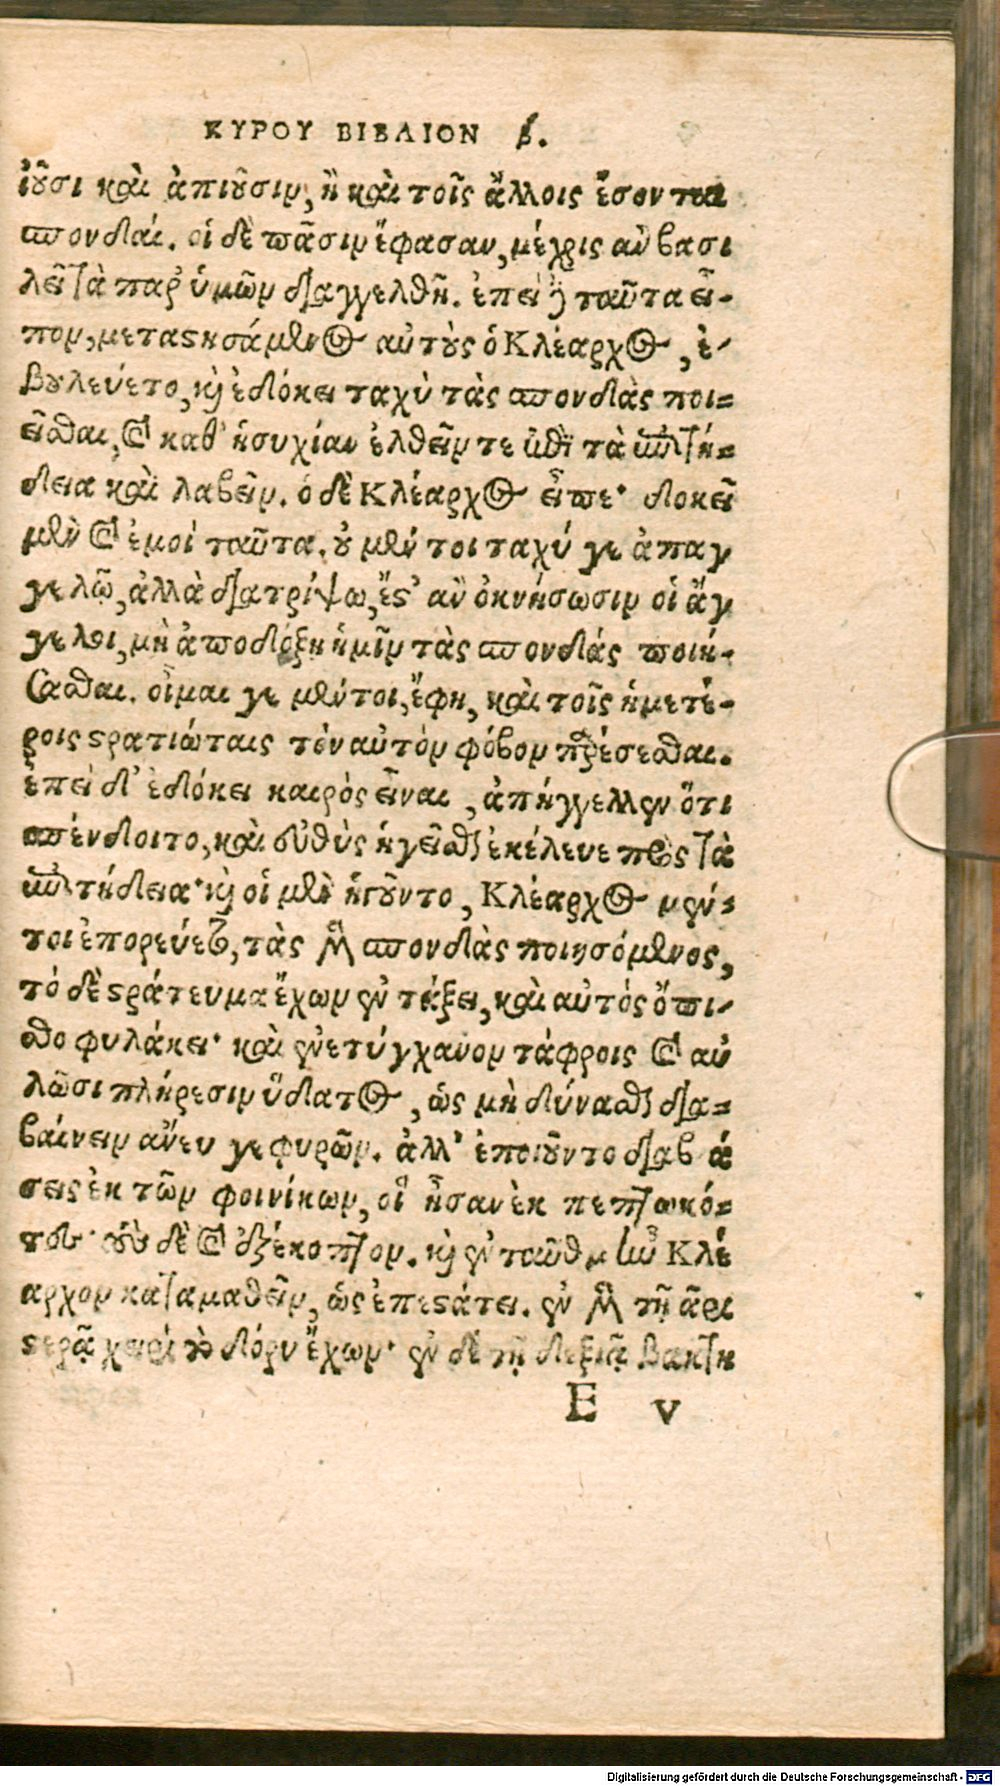 ΚΥΡΟΥ ΒΙΒΛΙΟΝ β.
ἰοῦσι καὶ ἀπιοῦσιν, ἢ καὶ τοῖς ἄλλοις ἔσονται
σπονδαί. οἱ δὲ πᾶσιν ἔφασαν, μέχρις ἂν βασι
λεῖ τὰ παρ' ὑμῶν διαγγελθῇ. ἐπεὶ δὲ ταῦτα εἶ-
πον, μεταστησάμενος αὐτοὺς ὁ Κλέαρχος, ἐ-
βουλεύετο, καὶ ἐδόκει ταχὺ τὰς σπονδὰς ποι=
εῖσθαι, καὶ καθ' ἡσυχίαν ἐλθεῖν τε ἐπὶ τὰ ἐπιτή=
δεια καὶ λαβεῖν. ὁ δὲ Κλέαρχος εἶπε· δοκεῖ
μὲν καὶ ἐμοὶ ταῦτα. οὐ μέν τοι ταχύ γε ἀπαγ
γελῶ, ἀλλὰ διατρίψω, ἔστ' ἂν ὀκνήσωσιν οἱ ἄγ
γελοι, μὴ ἀποδόξῃ ἡμῖν τὰς σπονδάς ποιή-
σασθαι. οἶμαι γε μέντοι, ἔφη, καὶ τοῖς ἡμετέ-
ροις στρατιώταις τὸν αὐτὸν φόβον παρέσεσθαι.
ἐπεὶ δ' ἐδόκει καιρὸς εἶναι, ἀπήγγελλεν ὅτι
σπένδοιτο, καὶ εὐθὺς ἡγεῖσθαι ἐκέλευε πρὸς τὰ
ἐπιτήδεια· καὶ οἱ μὲν ἡγοῦντο, Κλέαρχος μέν=
τοι ἐπορεύετο, τὰς μὲν σπονδὰς ποιησόμενος,
τὸ δὲ στράτευμα ἔχων ἐν τάξει, καὶ αὐτὸς ὀπι-
σθοφυλάκει· καὶ ἐνετύγχανον τάφροις καὶ αὐ
λῶσι πλήρεσιν ὕδατος, ὡς μὴ δύνασθαι δια=
βαίνειν ἄνευ γεφυρῶν. ἀλλ' ἐποιοῦντο διαβά
σεις ἐκ τῶν φοινίκων, οἳ ἦσαν ἐκ πεπτωκό=
τες· οὓς δὲ καὶ ἐξέκοπτον. καὶ ἐνταῦθα ἦν Κλέ
αρχον καταμαθεῖν, ὡς ἐπεστάτει. ἐν μὲν τῇ ἀρι
στερᾷ χειρὶ τὸ δόρυ ἔχων· ἐν δὲ τῇ δεξιᾷ βακτη
E v
Digitalisierung gefördert durch die Deutsche Forschungsgemeinschaft - DFG